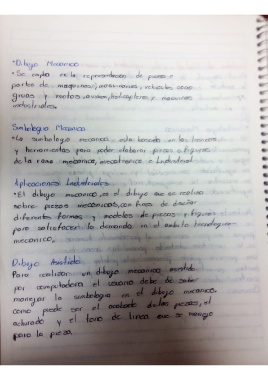 •Dibujo Mecanico
•Se emplea en la representacion de piezas o
partes de maquinas, maquinarias, vehiculos como
gruas y motos, aviones, helicopteros y maquinas
industriales.
Simbologia Mecanica
•La simbologia mecanica esta basada en las tecnicas
y herramientas para poder elaborar piezas o figuras
de la rama mecanica, mecatronica o Industrial
Aplicaciones Industriales
•El dibujo mecanico, es el dibujo que se realiza
sobre piezas mecanicas, con fines de diseño
diferentes formas y modelos de piezas y figuras
para satisfacer la demanda en el ambito tecnologico
mecanico,
Dibujo Asistido
Para realizar un dibujo mecanico asistido
por computadora el usuario debe de saber
manejar la simbologia en el dibujo mecanico.
como puede ser el acotado de las piezas, el
achurado y el tono de linea que se maneja
para la pieza.